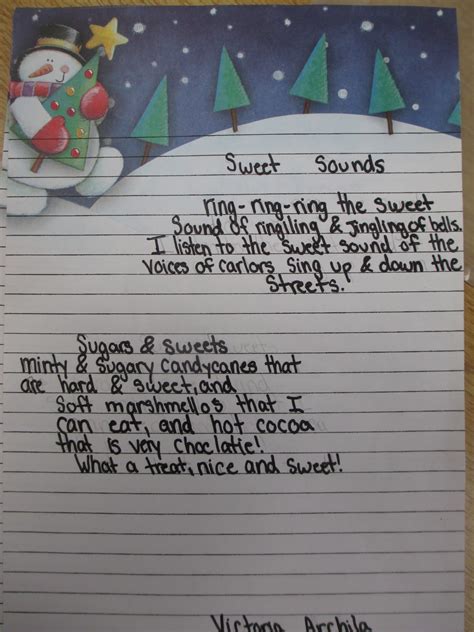 Sweet Sounds
ring-ring-ring the sweet
Sound of ringiling & Jingling of bells.
I listen to the sweet sound of the
Voices of carlors sing up & down the
Streets.
Sugars & Sweets
minty & sugary candycanes that
are hard & sweet, and
Soft marshmellos that I
can eat, and hot cocoa
that is very choclatie!
What a treat, nice and sweet!
Victoria Archila